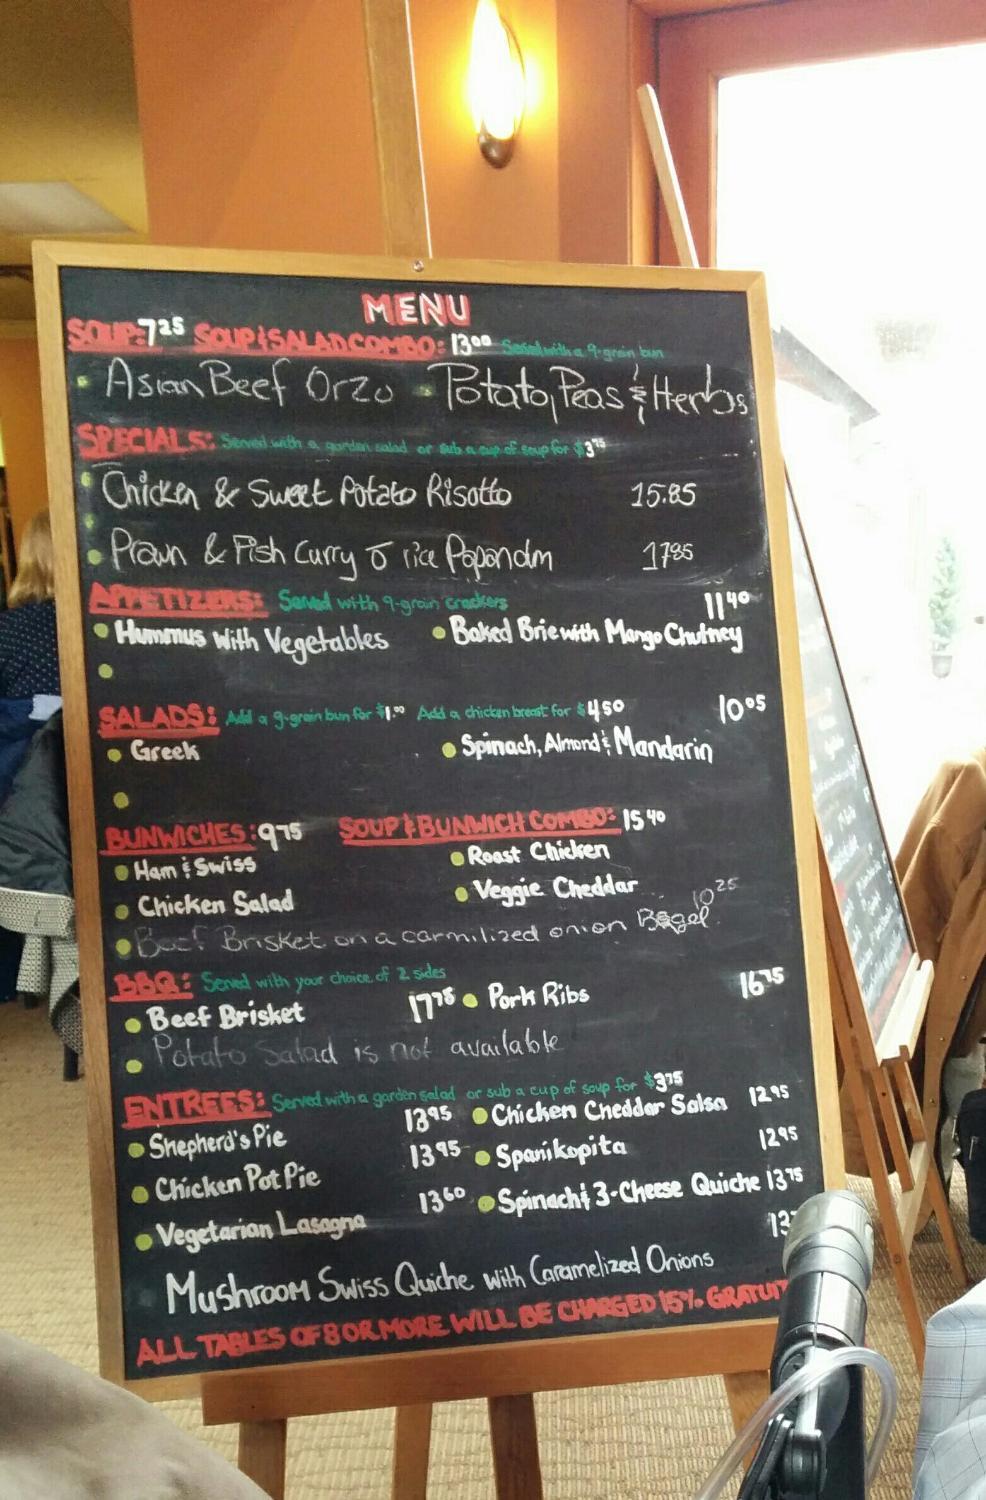 MENU
SOUP: 7.25 SOUP & SALAD COMBO: 13.00 Served with a 9-grain bun
Asian Beef Orzo Potato, Peas & Herbs
SPECIALS: Served with a garden salad or sub a cup of soup for $3.75
Chicken & Sweet Potato Risotto 15.85
Prawn & Fish Curry c̄ rice Papondm 17.85
APPETIZERS: Served with 9-grain crackers 11.40
Hummus with Vegetables Baked Brie with Mango Chutney
SALADS: Add a 9-grain bun for $1.00 Add a chicken breast for $4.50 10.05
Greek Spinach, Almond & Mandarin
BUNWICHES: 9.75 SOUP & BUNWICH COMBO: 15.40
Ham & Swiss Roast Chicken
Chicken Salad Veggie Cheddar
Beef Brisket on a carmilized onion Bagel 10.25
BBQ: Served with your choice of 2 sides
Beef Brisket 17.75 Pork Ribs 16.75
Potato Salad is not available
ENTREES: Served with a garden salad or sub a cup of soup for $3.75
Shepherd's Pie 13.95 Chicken Cheddar Salsa 12.95
Chicken Pot Pie 13.95 Spanikopita 12.95
Vegetarian Lasagna 13.60 Spinach & 3-Cheese Quiche 13.75
Mushroom Swiss Quiche with Caramelized Onions 13.
ALL TABLES OF 8 OR MORE WILL BE CHARGED 15% GRATUIT